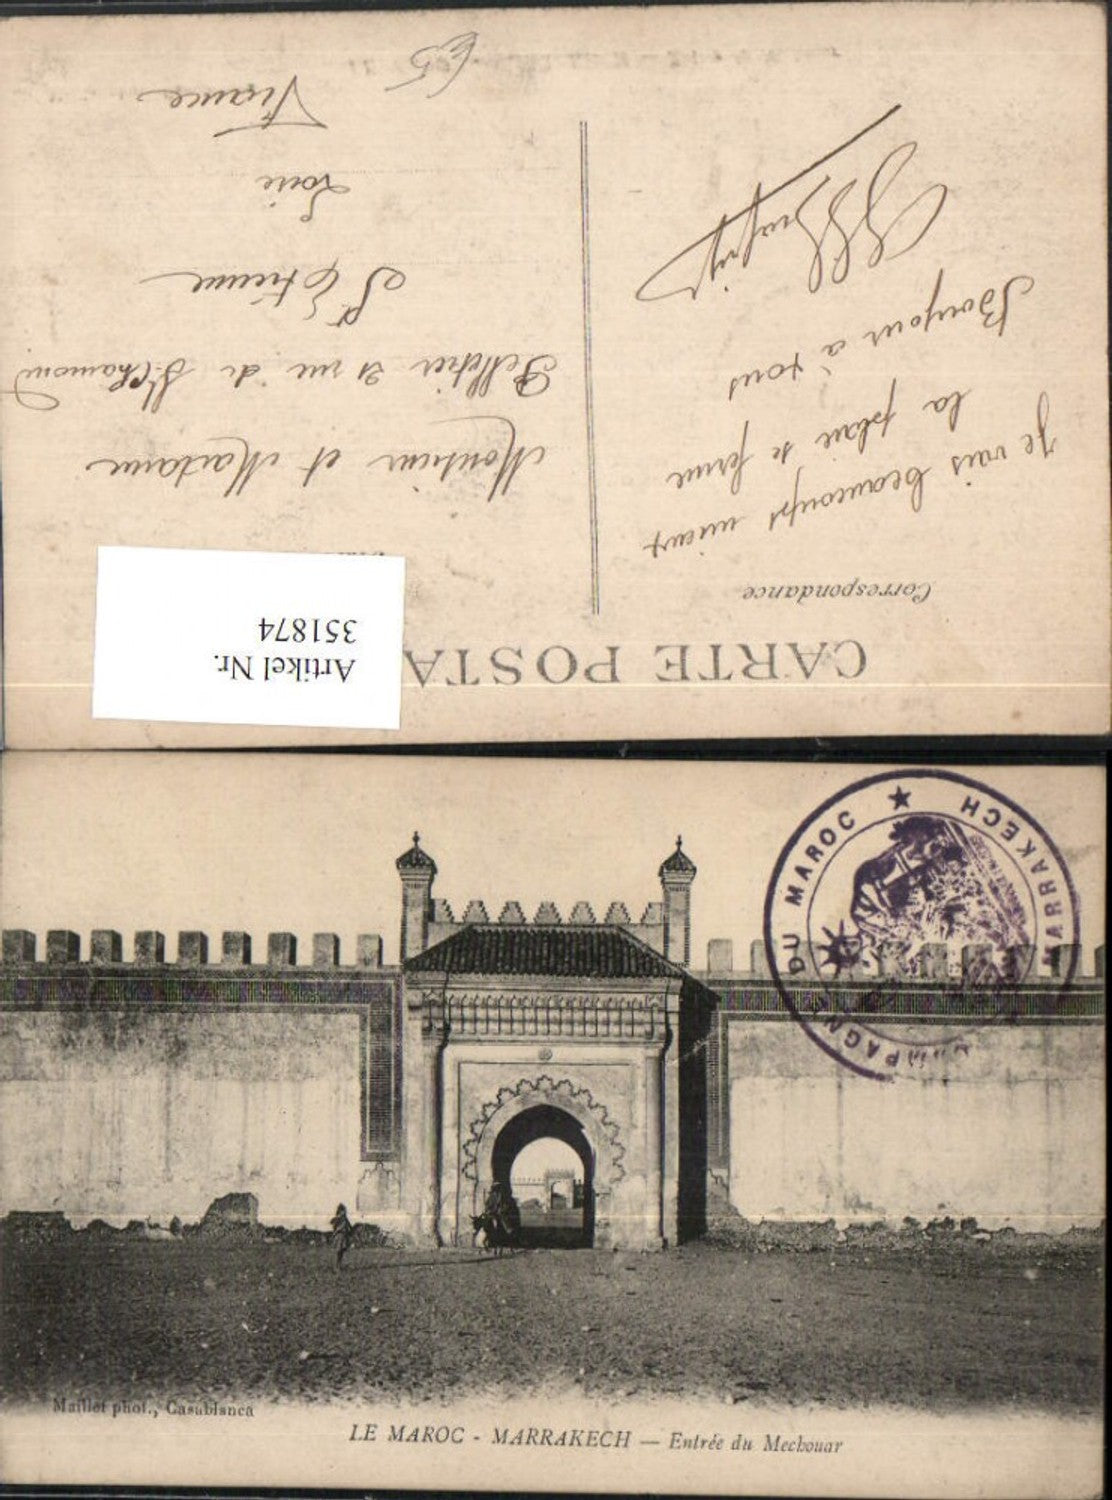 CARTE POSTA
Correspondance
Je vais beaucoup mieux
la plaie se ferme
Bonjour à tous
Monsieur et Madame
Pelletier 21 rue de St Chamond
St Etienne
Loire
France
Artikel Nr.
351874
DU MAROC ★ MARRAKECH
Maillet phot., Casablanca
LE MAROC - MARRAKECH — Entrée du Mechouar